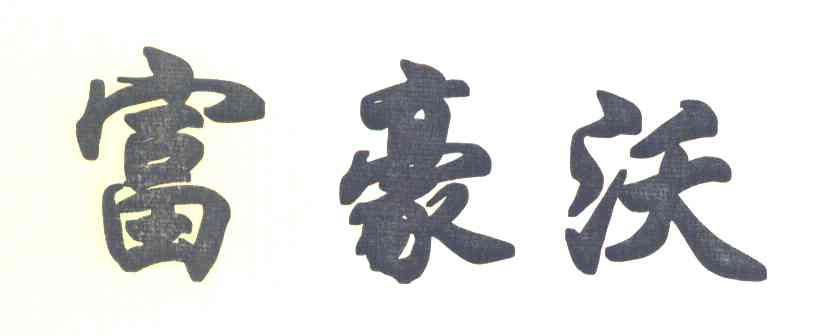 富豪沃